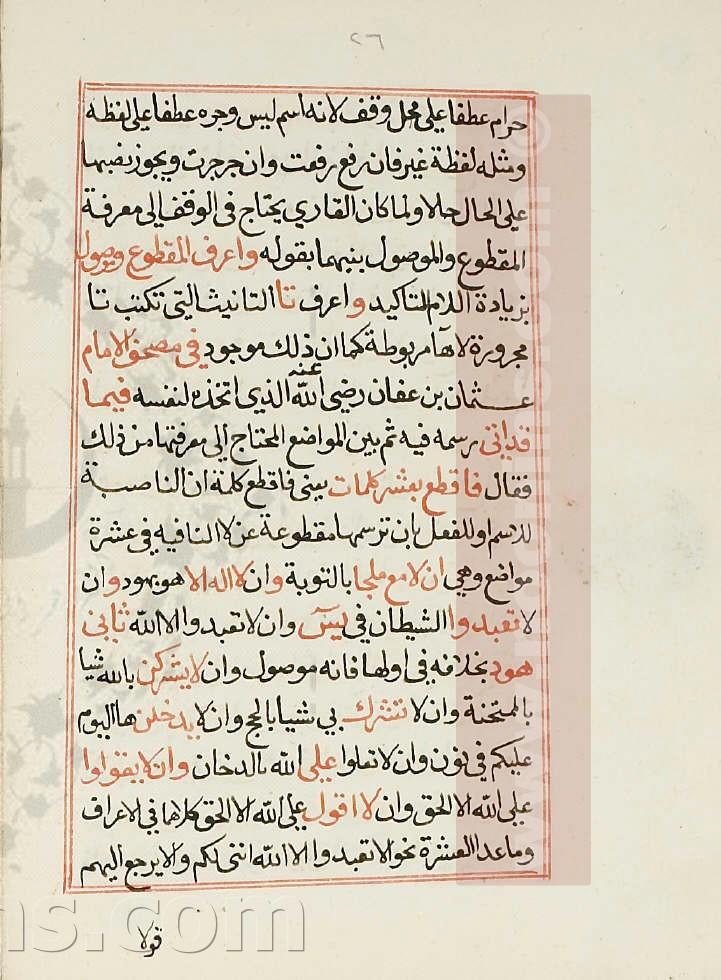 ٢٦
حرام عطفا على محل وقف لانه اسم ليس وجره عطفا على لفظه
ومثله لفظة غير فان رفع رفعت وان جر جرت ويجوز نصبها
على الحال حلا ولما كان القاري يحتاج فى الوقف الى معرفة
المقطوع والموصول بنبهما بقوله واعرف لمقطوع وموصول
بزيادة اللام للتاكيد واعرف تا التانيث التى تكتب تا
مجرورة لاها مربوطة كما ان ذلك موجود فى مصحف الامام
عثمان بن عفان رضي الله عنه الذى اتخذه لنفسه فيما
قد اتى رسمه فيه ثم بين المواضع المحتاج الى معرفتها من ذلك
فقال فاقطع بعشر كلمات يعنى فاقطع كلمة ان الناصبة
للاسم او للفعل بان ترسمها مقطوعة عن لا النافيه فى عشرة
مواضع وهي ان لا مع ملجا بالتوبة وان لا اله الا هو بهود وان
لا تعبدوا الشيطان في يس وان لا تعبدوا الا الله ثانى
هود بخلافه فى اولها فانه موصول وان لا يشركن بالله شيا
بالممتحنة وان لا تشرك بي شيا بالحج وان لا يدخلن ها اليوم
عليكم فى نون وان لا تعلوا على الله بالدخان وان لا يقولوا
على الله الا الحق وان لا اقول على الله الا الحق كلاها في الاعراف
وما عدا العشرة نحو الا تعبدوا الا الله اننى لكم والا يرجع اليهم
قولا
ns.com